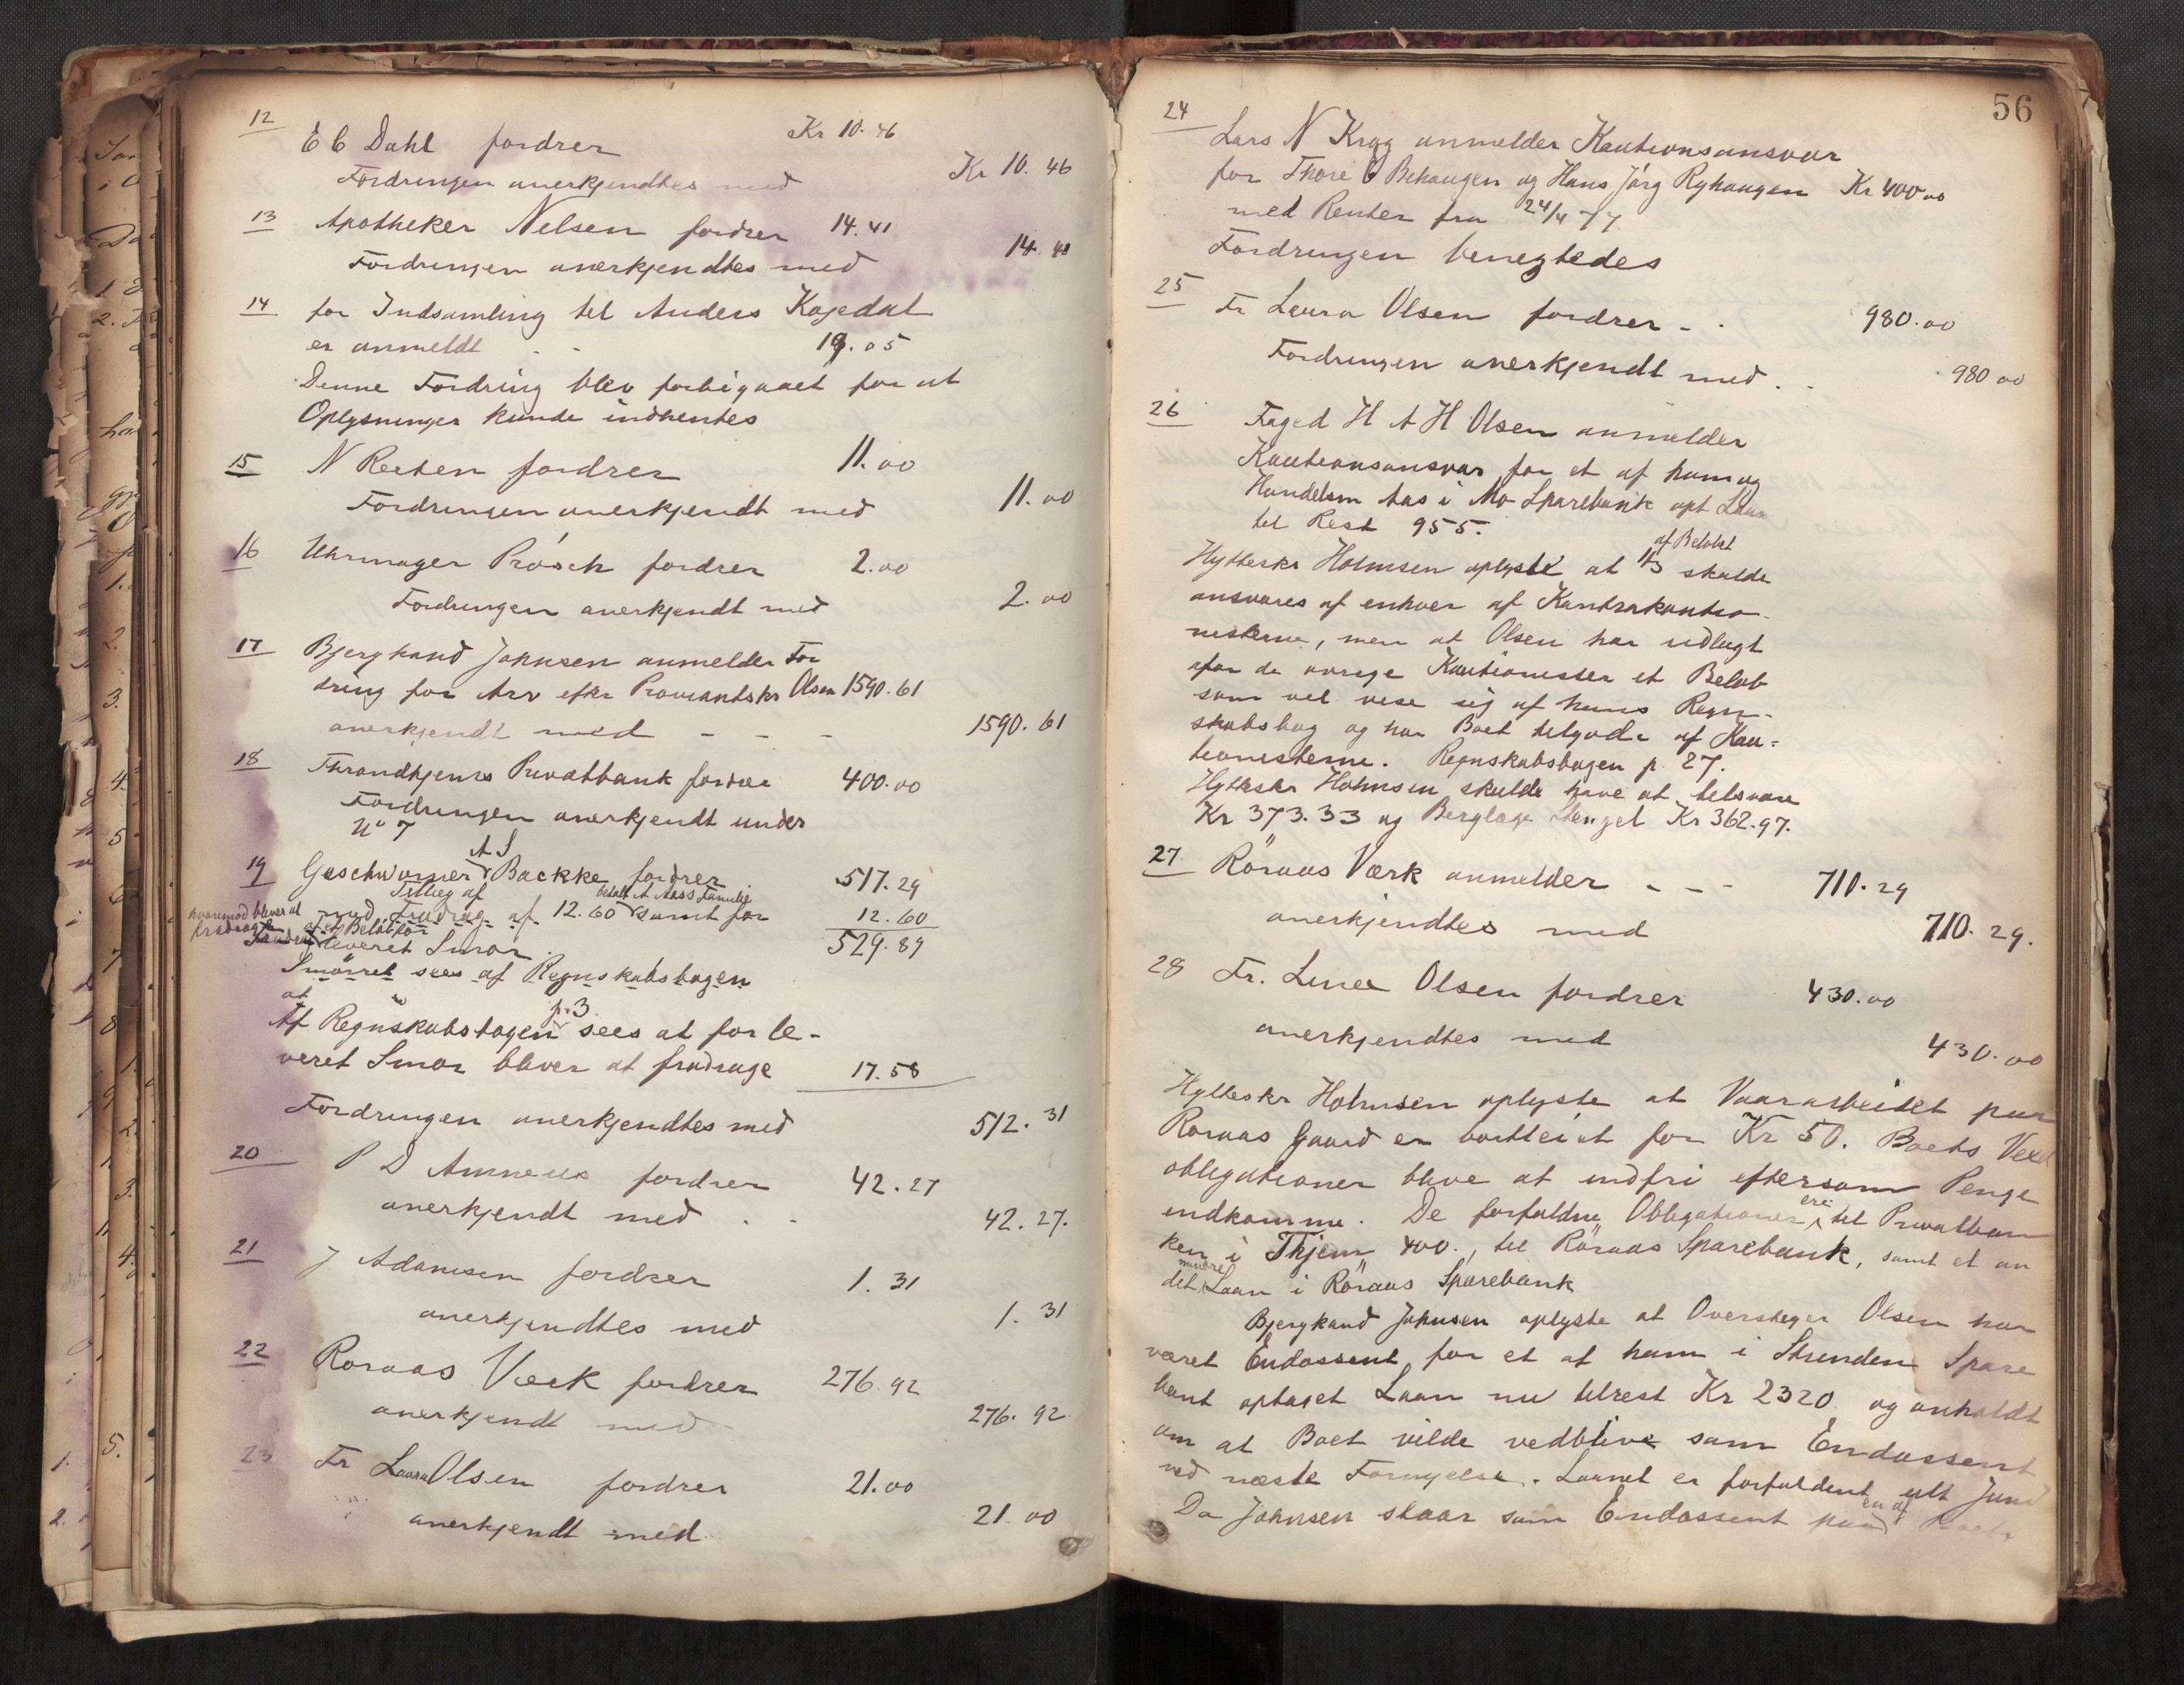 12
E C Dahl fordrer Kr 10.46
Fordringen anerkjendtes med Kr 10.46
13 Apotheker Nelsen fordrer 14.41
Fordringen anerkjendtes med 14.41
14 for Indsamling tel Anders Kojedal
er anmeldt - - 19.05
Denne Fordring blev forbigaaet for at
Oplysninger kunde indhentes
15 N Resten fordrer 11.00
Fordringen anerkjendt med 11.00
16 Uhrmager Prösch fordrer 2.00
Fordringen anerkjendt med 2.00
17 Bjergkand Johnsen anmelder For
dring for Arv efter Proviantskr Olsen 1590.61
anerkjendt med - - - 1590.61
18 Throndhjems Privatbank fordrer 400.00
Fordringen anerkjendt under
No 7
A S
19 Geschworner Backke fordrer 517.29
Tillæg af betalt A Aass Familie
med Fradrag af 12.60 samt for 12.60
hvorimod bliver at
fradrage et Beløb for
leveret Smör 529.89
Smörret sees af Regnskabsbogen
at
p. 3
Af Regnskabsbogen sees at for le-
veret Smør bliver at fradrage 17.58
Fordringen anerkjendtes med 512.31
20 P D Amneus fordrer 42.27
anerkjendt med . - 42.27.
21 J Adamsen fordrer 1.31
anerkjendtes med 1.31
22 Roraas Værk fordrer 276.92
anerkjendt med 276.92
23 Fr Laura Olsen fordrer 21.00
anerkjendt med 21.00
56
24
Lars N Krag anmelder Kautionsansvar
for Thore Behaugen og Hans Jörg Ryhaugen Kr 400.00
med Renter fra 24/4 77
Fordringen benegtedes
25 Fr Laura Olsen fordrer - . 980.00
Fordringen anerkjendt med . . 980 00
26 Foged H A H Olsen anmelder
Kautionsansvar for et af ham og
Handelsm Aas i Mo Sparebank opt Laan
tel Rest 955.
af Beløbet
Hytteskr Holmsen oplyste at 1/3 skulde
ansvares af enhver af Kontrakautio-
nisterne, men at Olsen har udlagt
for de øvrige Kautionister et Beløb
som vel vise sig af hans Regn-
skabsbog og har Boet tilgode af Kau=
tionisterne. Regnskabsbogen p. 27.
Hytteskr Holmsen skulde have at tilsvare
Kr 373.33 og Berglæge Stengel Kr 362.97.
27 Röraas Værk anmelder - - - 710.29
anerkjendtes med 710.29.
28 Fr. Line Olsen fordrer 430.00
anerkjendtes med 430.00
Hytteskr Holmsen oplyste at Vaararbeidet paa
Roraas Gaard er bortleiet for Kr 50. Boets Vexel
obligationer blive at indfri eftersom Penge
ere
indkomme. De forfaldne Obligationer tel Privatban
ken i Thjem 400., tel Röraas Sparebank, samt et an
mindre
det Laan i Röraas Sparebank
Bjergkand Johnsen oplyste at Overstiger Olsen har
været Endossent for et af ham i Strinden Spare
bank optaget Laan nu tilrest Kr 2320 og anholdt
om at Boet vilde vedblive som Endossent
ved næste Fornyelse. Laanet er forfaldent ult Juni
en af
Da Johnsen staar som Endossent paa Boets